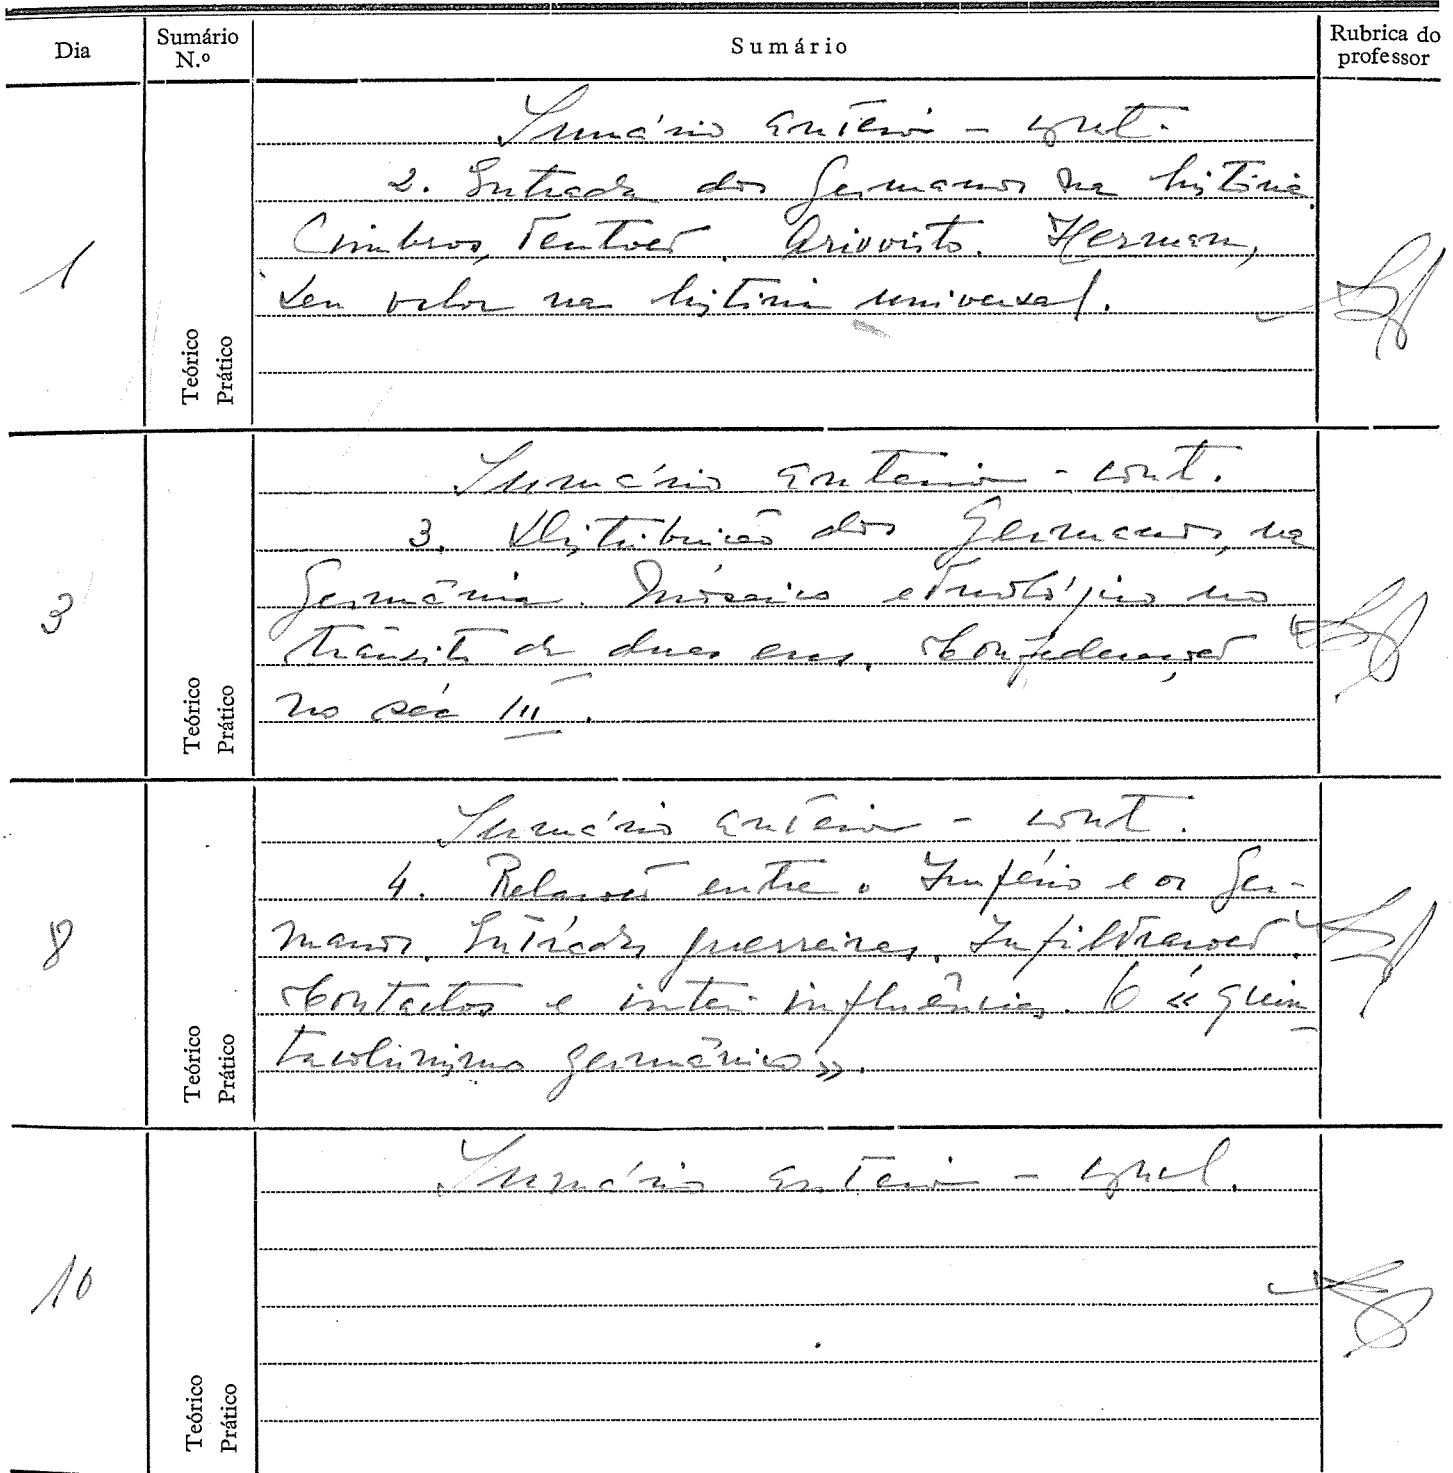 Dia
Sumário N.º
Sumário
Rubrica do professor
1
Teórico
Prático
Sumário anterior - cont.
2. Entrada dos Germanos na história.
Cimbros, Teutões. Ariovisto. Herman,
seu valor na história universal.
3
Teórico
Prático
Sumário anterior - cont.
3. Distribuição dos Germanos, na
Germânia. Mosaico etnológico no
trânsito de duas eras. Confederações
no séc III.
8
Teórico
Prático
Sumário anterior - cont.
4. Relações entre o Império e os Ger-
manos. Entradas guerreiras. Infiltrações.
Contactos e inter-influências. O «quin-
tacolunismo germânico».
10
Teórico
Prático
Sumário anterior -